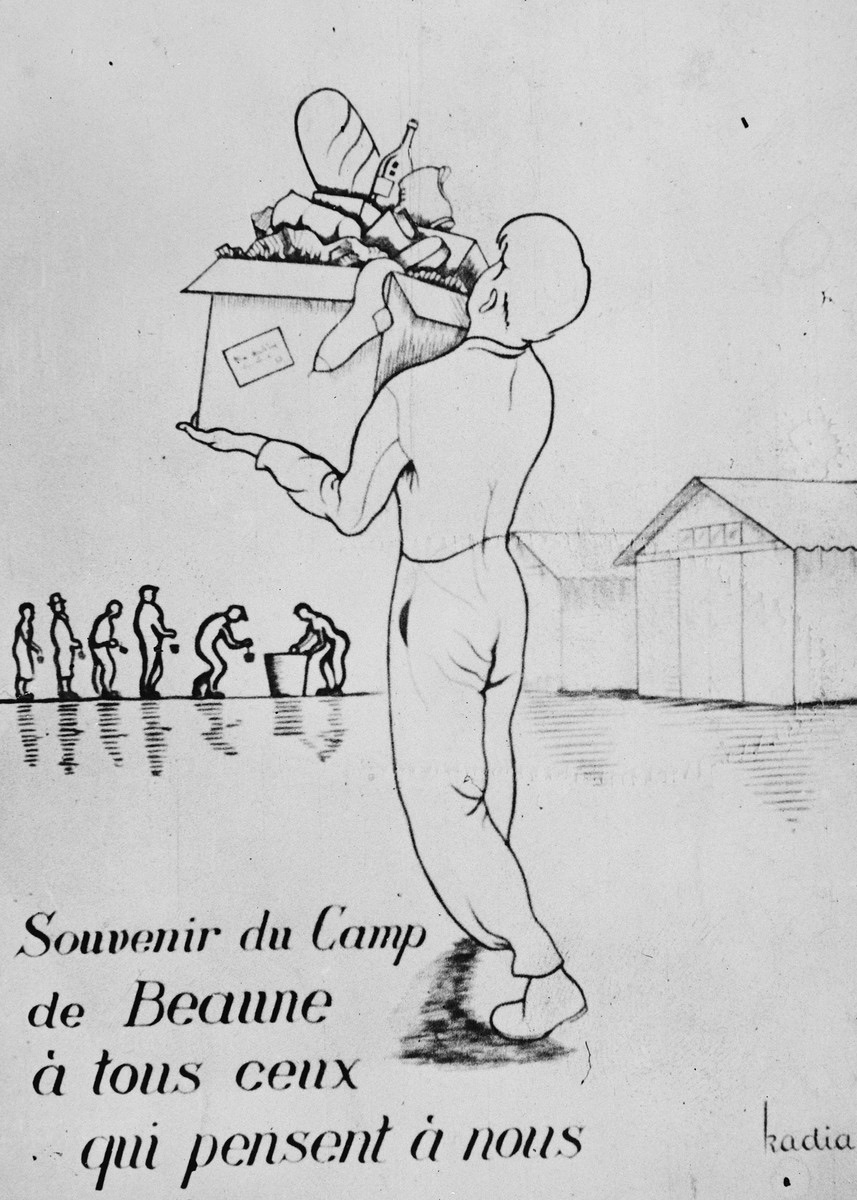 Souvenir du Camp
de Beaune
à tous ceux
qui pensent à nous
kadia